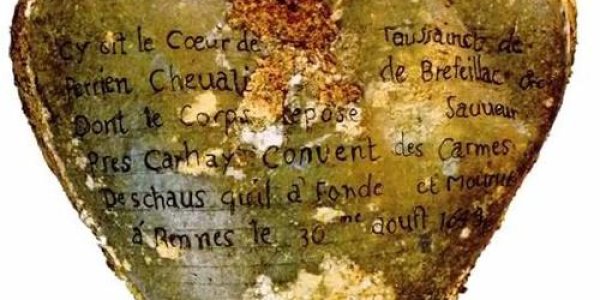 Cy Git le Coeur de Toussainct de
Perrien Chevali de Brefeillac
Dont le Corps Repose Sauveur
Pres Carhay Convent des Carmes
Deschaus qu'il à Fondé et Mourut
á Rennes le 30me aoust 1649